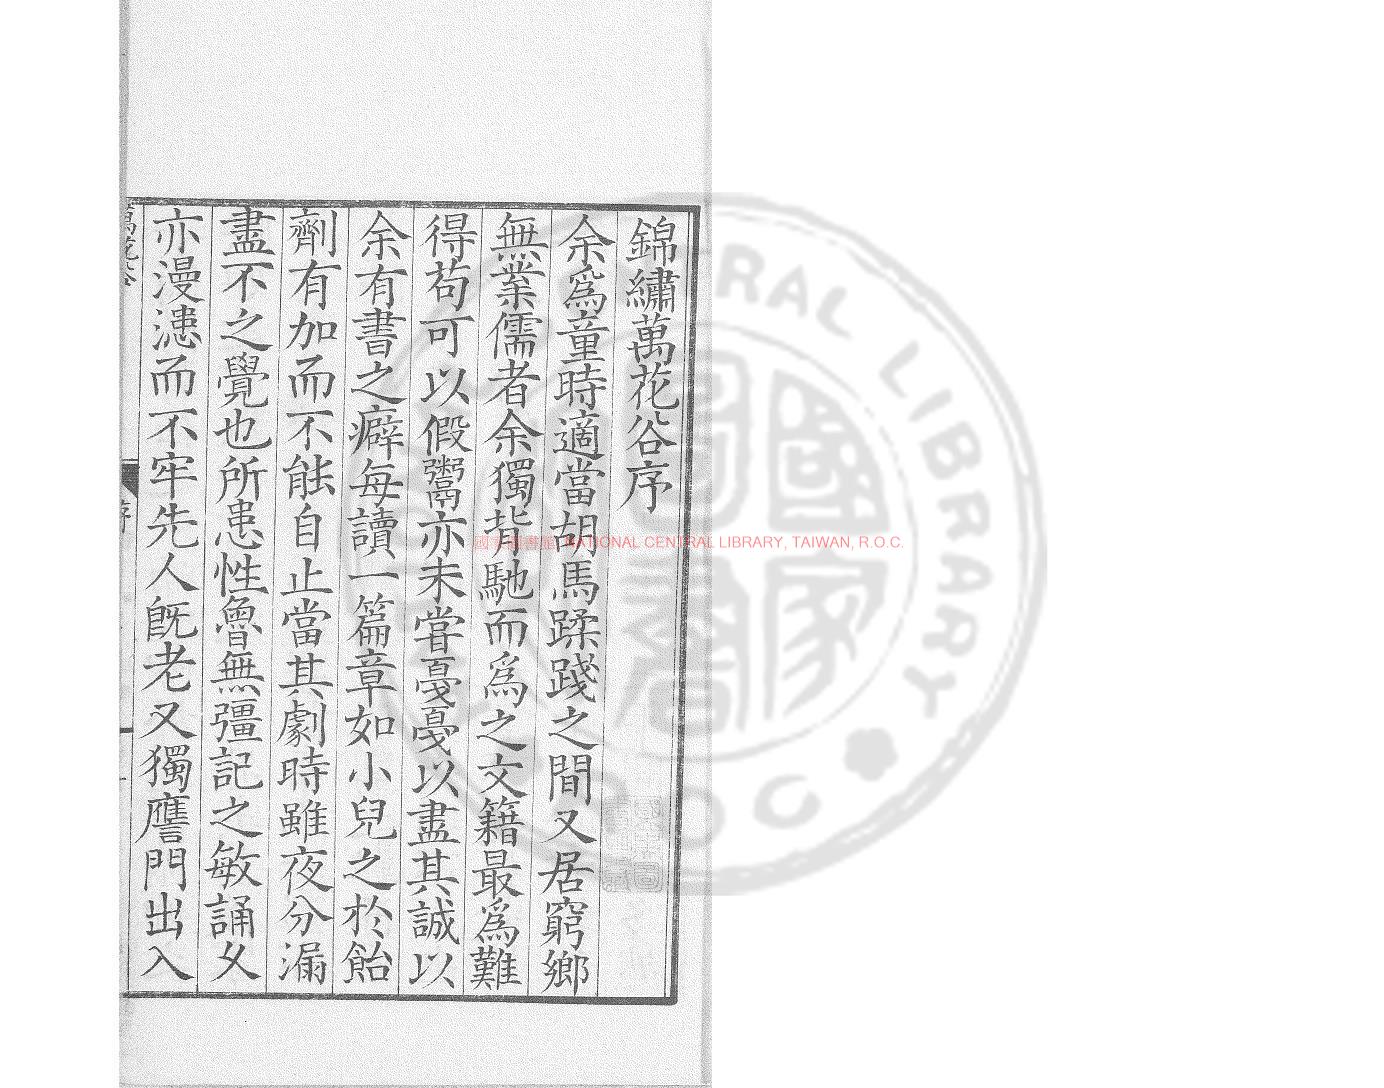 錦繡萬花谷序
余爲童時適當胡馬蹂踐之間又居窮鄉
無業儒者余獨背馳而爲之文籍最爲難
得苟可以假鬻亦未嘗戞戞以盡其誠以
余有書之癖每讀一篇章如小兒之於飴
劑有加而不能自止當其劇時雖夜分漏
盡不之覺也所患性魯無彊記之敏誦久
亦漫漶而不牢先人旣老又獨譍門出入
萬花谷
序
NATIONAL CENTRAL LIBRARY, TAIWAN, R.O.C.